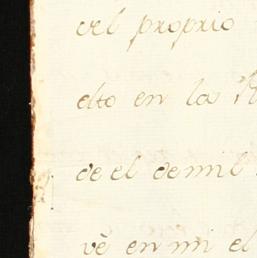 del proprio
alto en la
de el de mil
vè en mi el